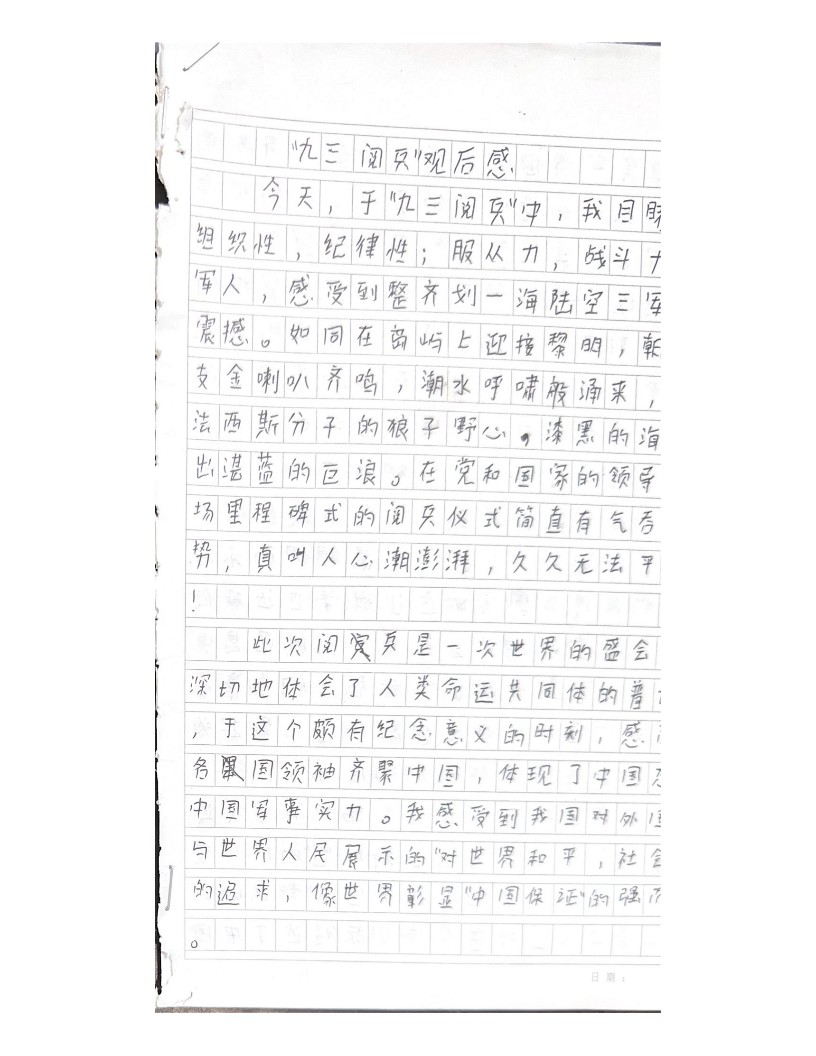 “九三阅兵”观后感
今天，于“九三阅兵”中，我目睹
组织性，纪律性；服从力，战斗力
军人，感受到整齐划一海陆空三军
震撼。如同在岛屿上迎接黎明，朝
支金喇叭齐鸣，潮水呼啸般涌来，
法西斯分子的狼子野心。漆黑的海
出湛蓝的巨浪。在党和国家的领导
场里程碑式的阅兵仪式简直有气吞
势，真叫人心潮澎湃，久久无法平
！
此次阅兵是一次世界的盛会
深切地体会了人类命运共同体的普
，于这个颇有纪念意义的时刻，感
各国领袖齐聚中国，体现了中国
中国军事实力。我感受到我国对外
与世界人民展示的“对世界和平，社会
的追求，像世界彰显“中国保证”的强
。
日期：